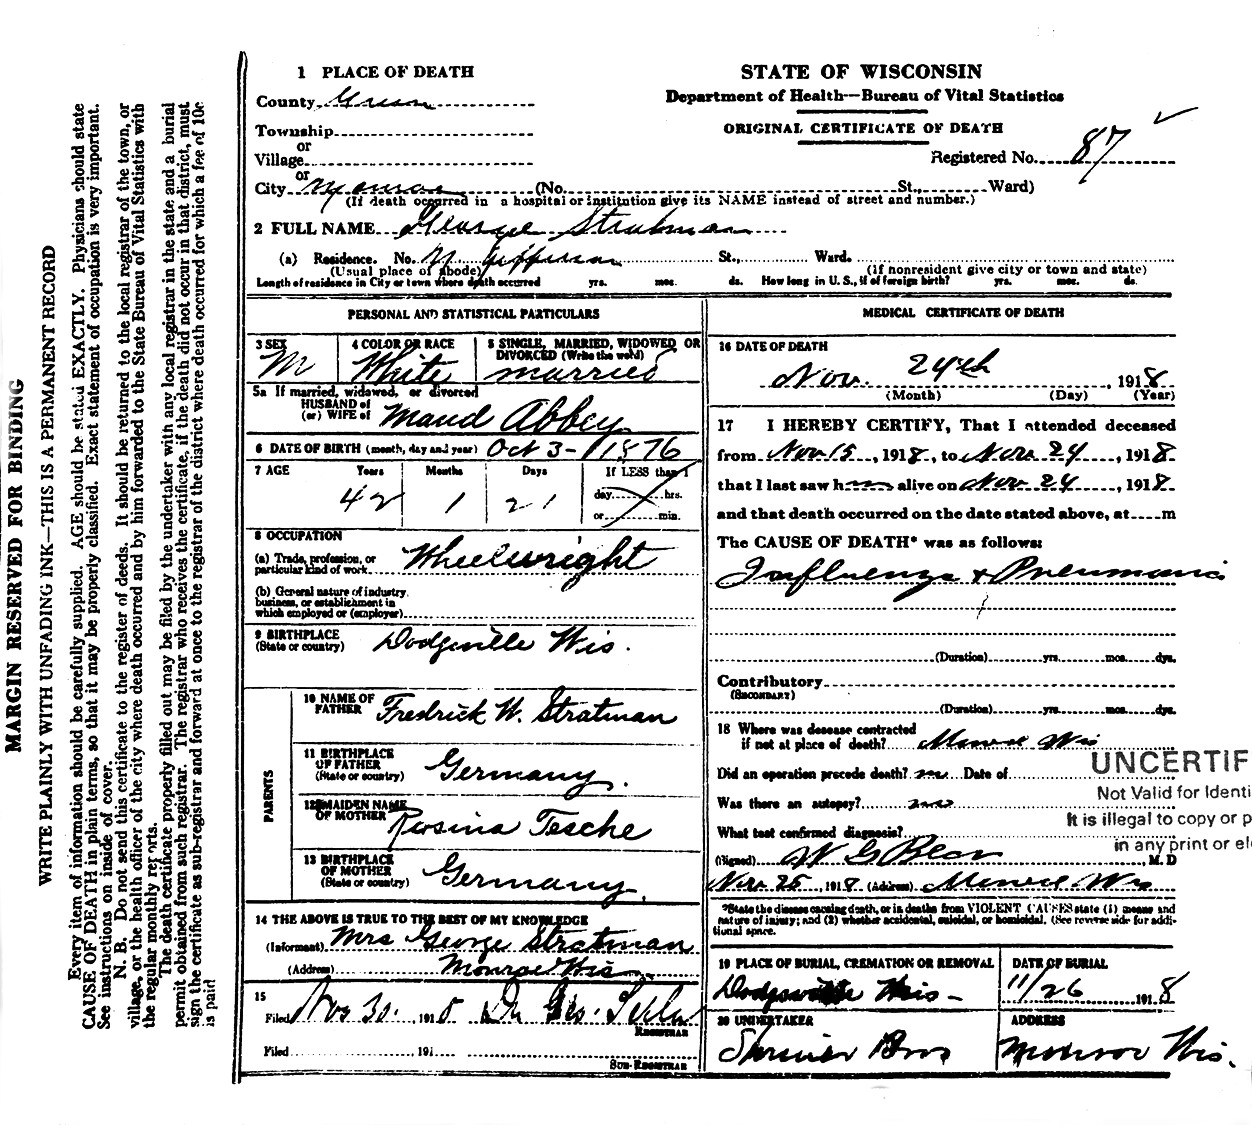 MARGIN RESERVED FOR BINDING
WRITE PLAINLY WITH UNFADING INK—THIS IS A PERMANENT RECORD
Every item of information should be carefully supplied. AGE should be stated EXACTLY. Physicians should state
CAUSE OF DEATH in plain terms, so that it may be properly classified. Exact statement of occupation is very important.
See instructions on inside of cover.
N. B. Do not send this certificate to the register of deeds. It should be returned to the local registrar of the town, or
village, or the health officer of the city where death occurred and by him forwarded to the State Bureau of Vital Statistics with
the regular monthly reports.
The death certificate properly filled out may be filed by the undertaker with any local registrar in the state and a burial
permit obtained from such registrar. The registrar who receives the certificate, if the death did not occur in that district, must
sign the certificate as sub-registrar and forward at once to the registrar of the district where death occurred for which a fee of 10c
is paid
1 PLACE OF DEATH
County Green
Township
or
Village
or
City Monroe (No. St., Ward)
(If death occurred in a hospital or institution give its NAME instead of street and number.)
STATE OF WISCONSIN
Department of Health—Bureau of Vital Statistics
ORIGINAL CERTIFICATE OF DEATH
Registered No. 87
2 FULL NAME George Stratman
(a) Residence. No. N Jefferson St., Ward.
(Usual place of abode) (If nonresident give city or town and state)
Length of residence in City or town where death occurred yrs. mos. ds. How long in U. S., if of foreign birth? yrs. mos. ds.
PERSONAL AND STATISTICAL PARTICULARS
3 SEX
M
4 COLOR OR RACE
White
5 SINGLE, MARRIED, WIDOWED OR
DIVORCED (Write the word)
married
5a If married, widowed, or divorced
HUSBAND of
(or) WIFE of Maud Abbey
6 DATE OF BIRTH (month, day and year) Oct 3- 1876
7 AGE Years Months Days If LESS than 1
42 1 21 day hrs.
or min.
8 OCCUPATION
(a) Trade, profession, or
particular kind of work Wheelwright
(b) General nature of industry,
business, or establishment in
which employed or (employer)
9 BIRTHPLACE
(State or country) Dodgeville Wis.
PARENTS
10 NAME OF
FATHER Fredrick W. Stratman
11 BIRTHPLACE
OF FATHER
(State or country) Germany.
12 MAIDEN NAME
OF MOTHER Rosina Tesche
13 BIRTHPLACE
OF MOTHER
(State or country) Germany.
14 THE ABOVE IS TRUE TO THE BEST OF MY KNOWLEDGE
(Informant) Mrs George Stratman
(Address) Monroe Wis.
15
Filed Nov 30. 1918 Dr Geo.
REGISTRAR
Filed , 191
SUB-REGISTRAR
MEDICAL CERTIFICATE OF DEATH
16 DATE OF DEATH
Nov. 24th , 1918
(Month) (Day) (Year)
17 I HEREBY CERTIFY, That I attended deceased
from Nov 15, 1918, to Nov. 24, 1918
that I last saw him alive on Nov 24, 1918
and that death occurred on the date stated above, at m
The CAUSE OF DEATH* was as follows:
Influenza + Pneumonia
(Duration) yrs. mos. dys.
Contributory
(SECONDARY)
(Duration) yrs. mos. dys.
18 Where was desease contracted
if not at place of death? Monroe Wis
Did an operation precede death? no Date of
Was there an autopsy? no
What test confirmed diagnosis?
(Signed) W G Bear , M. D
Nov. 25, 1918 (Address) Monroe Wis
*State the disease causing death, or in deaths from VIOLENT CAUSES state (1) means and
nature of injury; and (2) whether accidental, suicidal, or homicidal. (See reverse side for addi-
tional space.
19 PLACE OF BURIAL, CREMATION OR REMOVAL
Dodgeville Wis-
DATE OF BURIAL
11/26 1918
20 UNDERTAKER
Shriner Bros
ADDRESS
Monroe Wis.
UNCERTIF
Not Valid for Identi
It is illegal to copy or p
in any print or ele